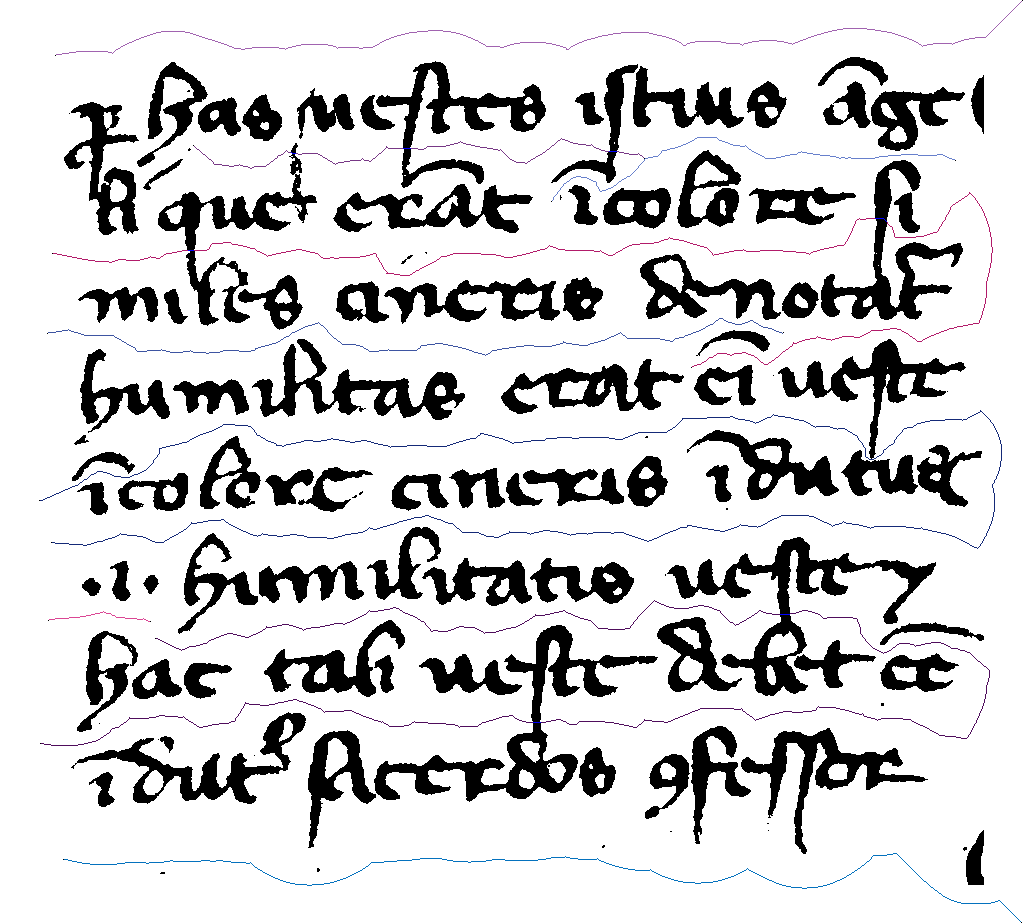 ꝑ has uestes istius āge
li que erāt ī colore si
miles cineris denotat᷑
humilitas erat ei ueste
ī colore cineris īdutus
.i. humilitatis ueste ⁊
hac tali ueste debet eē
īdutꝰ sacerdos ꝯfessor